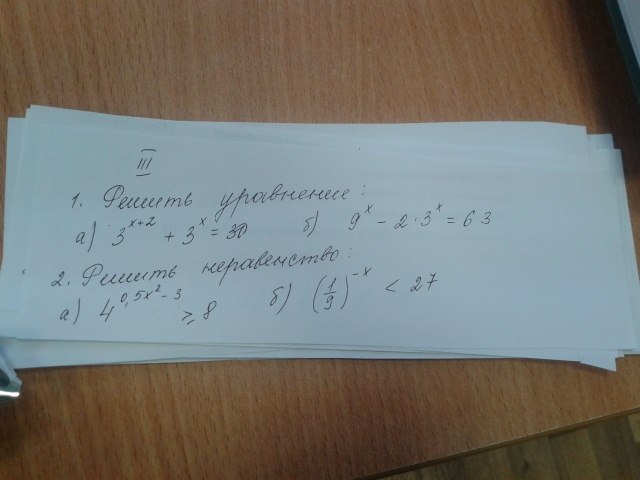 III
1. Решить уравнение:
а) 3^{x+2} + 3^x = 30 б) 9^x - 2·3^x = 63
2. Решить неравенство:
а) 4^{0,5x^2-3} ≥ 8 б) (1/9)^{-x} < 27